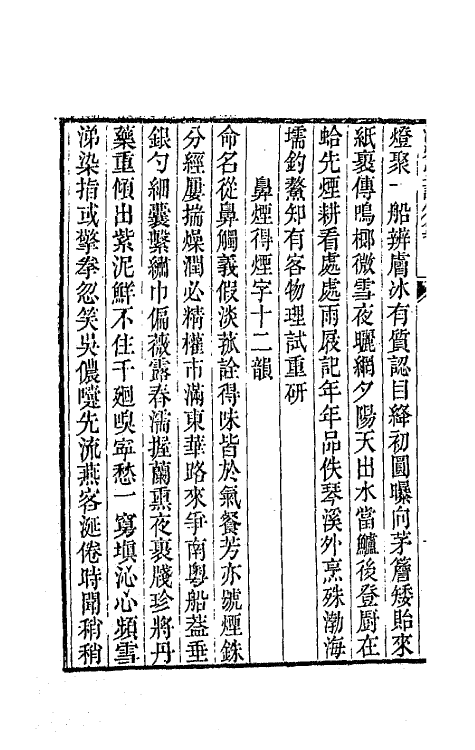 燈聚一船辨膚冰有質認目絳初圓曝向茅簷矮貽來
紙裹傳鳴榔微雪夜曬網夕陽天出水當鱸後登厨在
蛤先煙耕看處處雨展記年年品佚琴溪外烹殊渤海
壖釣鰲知有客物理試重研
鼻煙得煙字十二韻
命名從鼻觸義假淡菰詮得味皆於氣餐芳亦號煙銖
分經屢揣燥潤必精權市滿東華路來爭南粤船葢垂
銀勺細囊繫繡巾偏薇露春濡握蘭熏夜裹牋珍將丹
藥重傾出紫泥鮮不住千廻嗅寧愁一窮塡沁心頻雪
涕染指或擎拳忽笑吳儂嚏先流燕客涎倦時聞稍稍